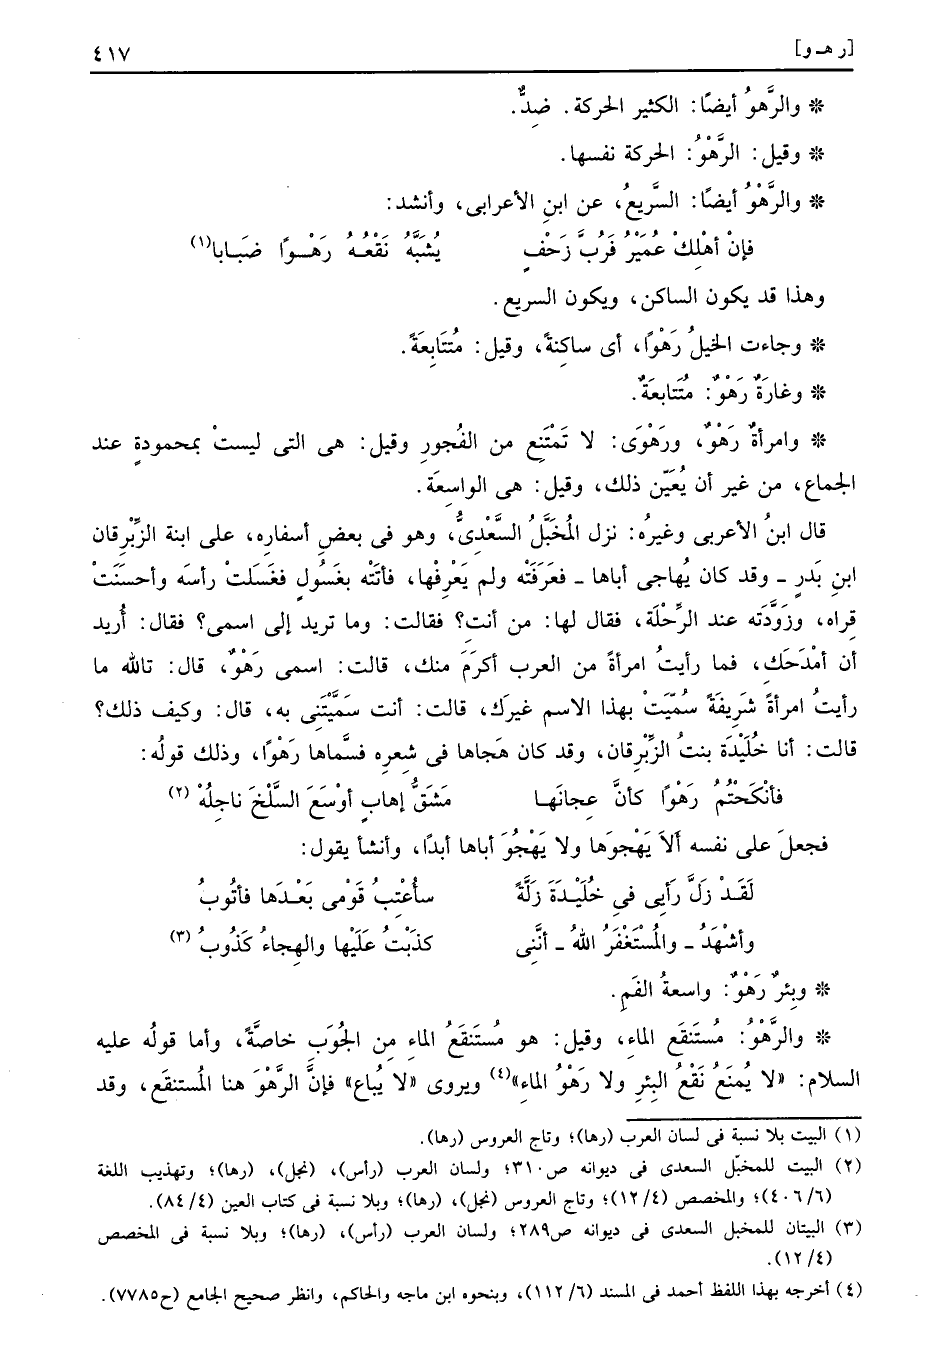 [رهـ و] ٤١٧
* والرَّهوُ أيضًا: الكثير الحركة. ضِدٌّ.
* وقيل: الرَّهْوُ: الحركة نفسها.
* والرَّهْوُ أيضًا: السَّريعُ، عن ابنِ الأعرابى، وأنشد:
فإنْ أهْلِكْ عُمَيْرُ فَرُبَّ زَحْفٍ يُشَبَّهُ نَقْعُهُ رَهْـوًا ضَبَـابا(١)
وهذا قد يكون الساكن، ويكون السريع.
* وجاءت الخيلُ رَهْوًا، أى ساكِنةً، وقيل: مُتَتَابِعَةً.
* وغارَةٌ رَهْوٌ: مُتَتابعَةٌ.
* وامرأةٌ رَهْوٌ، ورَهْوَى: لا تَمْتَنِع من الفُجورِ وقيل: هى التى ليستْ بمحمودةٍ عند
الجماع، من غير أن يُعَيّن ذلك، وقيل: هى الواسِعَة.
قال ابنُ الأعربى وغيرُه: نزل المُخَبَّل السَّعْدِىُّ، وهو فى بعض أسفاره، على ابنة الزِّبْرِقان
ابنِ بَدرٍ ـ وقد كان يُهاجى أباها ـ فعَرَفَتْه ولم يَعْرِفْها، فأتَتْه بغَسُولٍ فغَسَلتْ رأسَه وأحسَنَتْ
قِراه، وزَوَّدَته عند الرِّحْلَة، فقال لها: من أنت؟ فقالت: وما تريد إلى اسمى؟ فقال: أُريد
أن أمْدَحَك، فما رأيتُ امرأةً من العرب أكرَمَ منك، قالت: اسمى رَهْوٌ، قال: تالله ما
رأيتُ امرأةً شَرِيفَةً سُمّيَتْ بهذا الاسم غيرَك، قالت: أنت سَمَّيْتَنى به، قال: وكيف ذلك؟
قالت: أنا خُلَيْدَة بنتُ الزِّبْرِقان، وقد كان هَجاها فى شعرِه فسَّماها رَهْوًا، وذلك قولُه:
فأنْكَحْتُمُ رَهْوًا كأنَّ عِجانَهـا مَشَقُّ إهابٍ أوْسَعَ السَّلْخَ ناجِلُهْ (٢)
فجعلَ على نفسه ألاَ يَهْجوَها ولا يَهْجُوَ أباها أبدًا، وأنشأ يقول:
لَقَـدْ زَلَّ رَأيى فى خُلَيْـدَةَ زَلَّةً سأُعْتِبُ قَوْمى بَعْـدَها فأتُوبُ
وأشْهَدُ ـ والمُسْتَغْفَرُ اللهُ ـ أنَّنِى كَذَبْتُ عَلَيْها والهِجاءُ كَذُوبُ (٣)
* وبئرٌ رَهْوٌ: واسعةُ الفَمِ.
* والرَّهْوُ: مُستَنقَع الماءِ، وقيل: هو مُستَنقَعُ الماءِ مِن الجُوَبِ خاصَّةً، وأما قولُه عليه
السلام: «لا يُمنَعُ نَقْعُ البئرِ ولا رَهْوُ الماءِ»(٤) ويروى «لا يُباع» فإنَّ الرَّهْوَ هنا المُستنقَع، وقد
(١) البيت بلا نسبة فى لسان العرب (رها)؛ وتاج العروس (رها).
(٢) البيت للمخبّل السعدى فى ديوانه ص٣١٠؛ ولسان العرب (رأس)، (نجل)، (رها)؛ وتهذيب اللغة
(٤٠٦/٦)؛ والمخصص (١٢/٤)؛ وتاج العروس (نجل)، (رها)؛ وبلا نسبة فى كتاب العين (٨٤/٤).
(٣) البيتان للمخبل السعدى فى ديوانه ص٢٨٩؛ ولسان العرب (رأس)، (رها)؛ وبلا نسبة فى المخصص
(١٢/٤).
(٤) أخرجه بهذا اللفظ أحمد فى المسند (١١٢/٦)، وبنحوه ابن ماجه والحاكم، وانظر صحيح الجامع (ح٧٧٨٥).